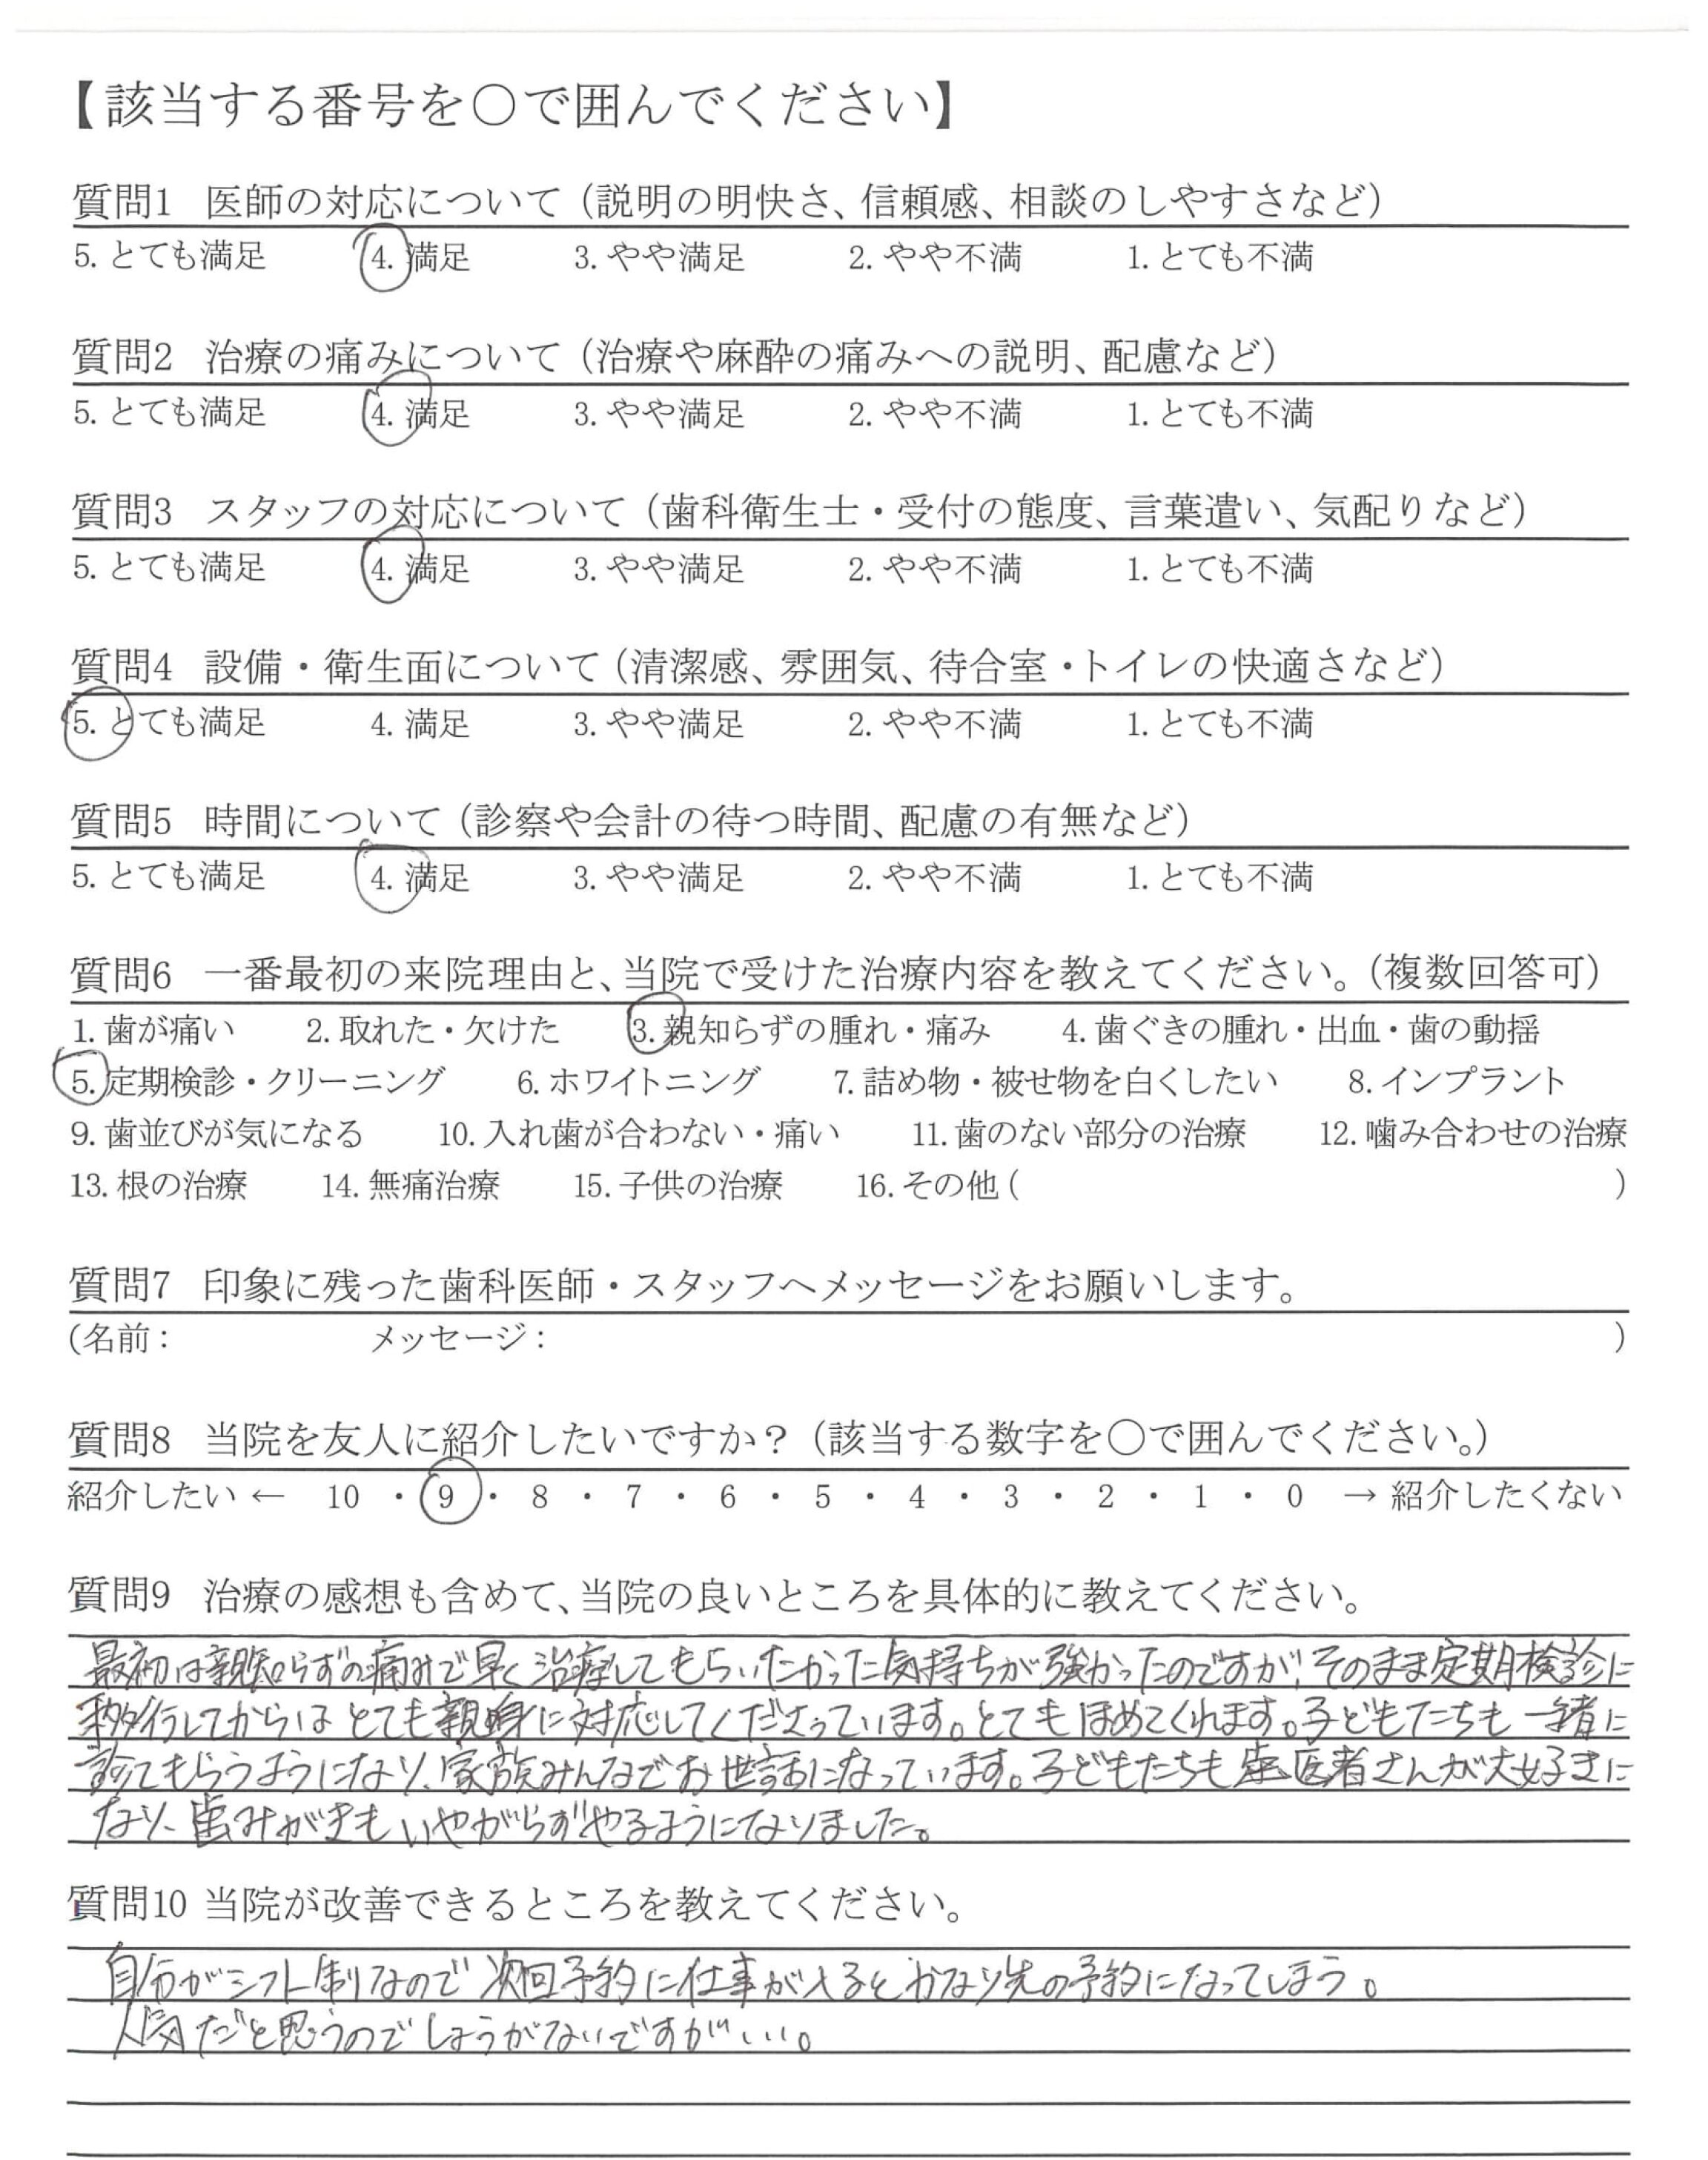 【該当する番号を○で囲んでください】
質問1 医師の対応について（説明の明快さ、信頼感、相談のしやすさなど）
5. とても満足 4. 満足 3. やや満足 2. やや不満 1. とても不満
質問2 治療の痛みについて（治療や麻酔の痛みへの説明、配慮など）
5. とても満足 4. 満足 3. やや満足 2. やや不満 1. とても不満
質問3 スタッフの対応について（歯科衛生士・受付の態度、言葉遣い、気配りなど）
5. とても満足 4. 満足 3. やや満足 2. やや不満 1. とても不満
質問4 設備・衛生面について（清潔感、雰囲気、待合室・トイレの快適さなど）
5. とても満足 4. 満足 3. やや満足 2. やや不満 1. とても不満
質問5 時間について（診察や会計の待つ時間、配慮の有無など）
5. とても満足 4. 満足 3. やや満足 2. やや不満 1. とても不満
質問6 一番最初の来院理由と、当院で受けた治療内容を教えてください。（複数回答可）
1. 歯が痛い 2. 取れた・欠けた 3. 親知らずの腫れ・痛み 4. 歯ぐきの腫れ・出血・歯の動揺
5. 定期検診・クリーニング 6. ホワイトニング 7. 詰め物・被せ物を白くしたい 8. インプラント
9. 歯並びが気になる 10. 入れ歯が合わない・痛い 11. 歯のない部分の治療 12. 噛み合わせの治療
13. 根の治療 14. 無痛治療 15. 子供の治療 16. その他（ ）
質問7 印象に残った歯科医師・スタッフへメッセージをお願いします。
（名前： メッセージ： ）
質問8 当院を友人に紹介したいですか？（該当する数字を○で囲んでください。）
紹介したい ← 10 ・ 9 ・ 8 ・ 7 ・ 6 ・ 5 ・ 4 ・ 3 ・ 2 ・ 1 ・ 0 → 紹介したくない
質問9 治療の感想も含めて、当院の良いところを具体的に教えてください。
最初は親知らずの痛みで早く治療してもらいたかった気持ちが強かったのですが、そのまま定期検診に
移行してからは とても親身に対応してくださっています。とてもほめてくれます。子どもたちも一緒に
診てもらうようになり、家族みんなでお世話になっています。子どもたちも歯医者さんが大好きに
なり、歯みがきもいやがらずやるようになりました。
質問10 当院が改善できるところを教えてください。
自分がシフト制なので次回予約に仕事が入るとかなり先の予約になってしまう。
人気だと思うのでしょうがないですが…。